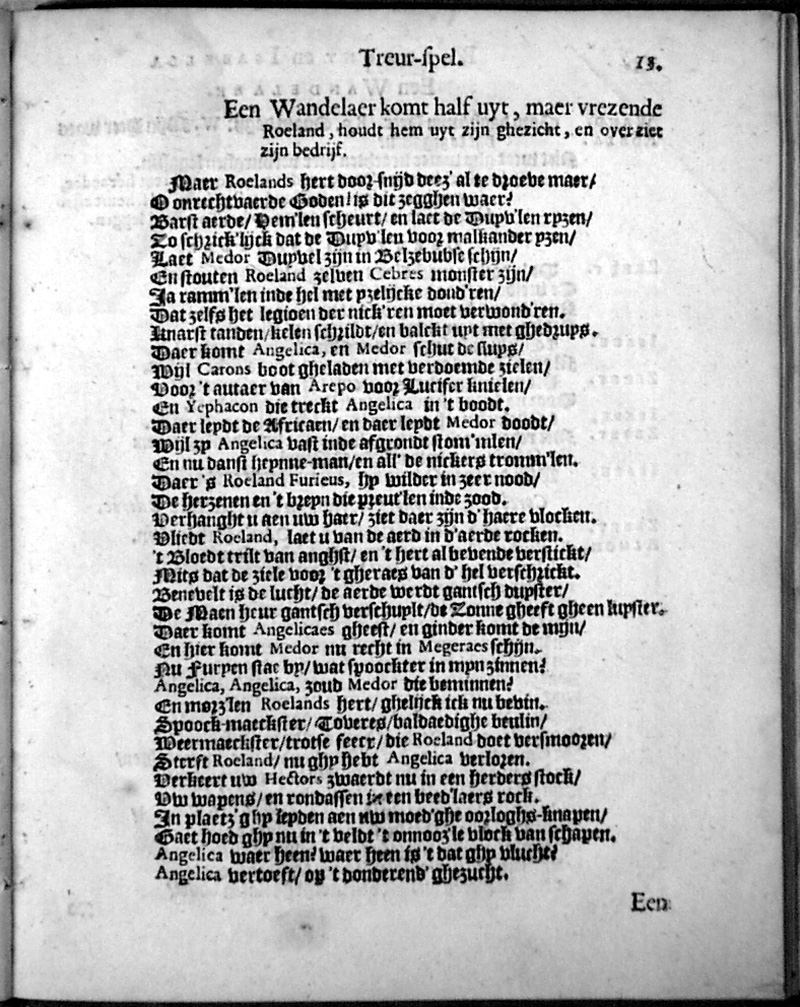 Treur-spel.
13.
Een Wandelaer komt half uyt, maer vrezende
Roeland, houdt hem uyt zijn ghezicht, en overziet
zijn bedrijf.
Maer Roelands hert door-snijd deez' al te droeve maer/
O onrechtvaerde Goden! is dit zegghen waer?
Barst aerde/ Hem'len scheurt/ en laet de Duyv'len ryzen/
Zo schrick'lijck dat de Duyv'len voor malkander yzen/
Laet Medor Duyvel zijn in Belzebubse schijn/
En stouten Roeland zelven Cebres monster zijn/
Ja ramm'len inde hel met yzelijcke dond'ren/
Dat zelfs het legioen der nick'ren moet verwond'ren.
Knarst tanden/kelen schrildt/en balckt uyt met ghedruys.
Daer komt Angelica, en Medor schut de sluys/
Wijl Carons boot gheladen met verdoemde zielen/
Voor 't autaer van Arepo voor Lucifer knielen/
En Yephacon die treckt Angelica in 't boodt.
Daer leydt de Africaen/ en daer leydt Medor doodt/
Wijl zy Angelica vast inde afgrondt stom'mlen/
En nu danst heynne-man/en all' de nickers tromm'len.
Daer 's Roeland Furieus, hy wilder in zeer nood/
De herzenen en 't breyn die preut'len inde zood.
Verhanght u aen uw haer/ ziet daer zijn d'haere vlocken.
Vliedt Roeland, laet u van de aerd in d'aerde rocken.
't Bloedt trilt van anghst/ en 't hert al bevende verstickt/
Mits dat de ziele voor 't gheraes van d' hel verschrickt.
Benevelt is de lucht/ de aerde werdt gantsch duyster/
De Maen heur gantsch verschuylt/de Zonne gheeft gheen luyster.
Daer komt Angelicaes gheest/ en ginder komt de mijn/
En hier komt Medor nu recht in Megeraes schijn.
Nu Furyen stae by/ wat spoockter in myn zinnen?
Angelica, Angelica, zoud Medor die beminnen?
En morz'len Roelands hert/ ghelijck ick nu bevin.
Spoock-maeckster/ Toveres/baldaedighe beulin/
Weermaeckster/trotse feecx/ die Roeland doet versmooren/
Sterft Roeland/ nu ghy hebt Angelica verloren.
Verkeert uw Hectors zwaerdt nu in een herders stock/
Uw wapens/ en rondassen in een beed'laers rock.
In plaetz' ghy leyden aen uw moed'ghe oorloghs-knapen/
Gaet hoed ghy nu in 't veldt 't onnooz'le vlock van schapen.
Angelica waer heen? waer heen is 't dat ghy vlucht?
Angelica vertoeft/ op 't donderend' ghezucht.
Een